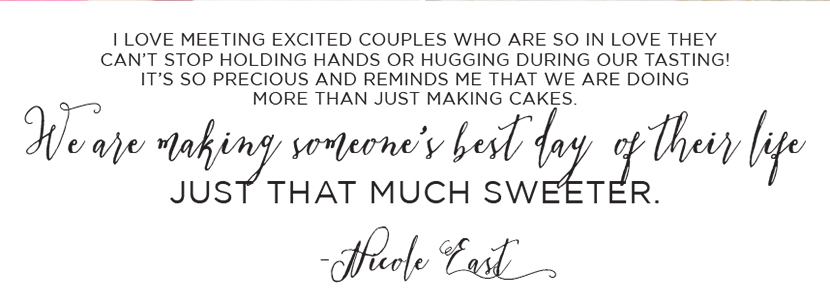 I LOVE MEETING EXCITED COUPLES WHO ARE SO IN LOVE THEY
CAN'T STOP HOLDING HANDS OR HUGGING DURING OUR TASTING!
IT'S SO PRECIOUS AND REMINDS ME THAT WE ARE DOING
MORE THAN JUST MAKING CAKES.
We are making someone's best day of their life
JUST THAT MUCH SWEETER.
-Nicole East